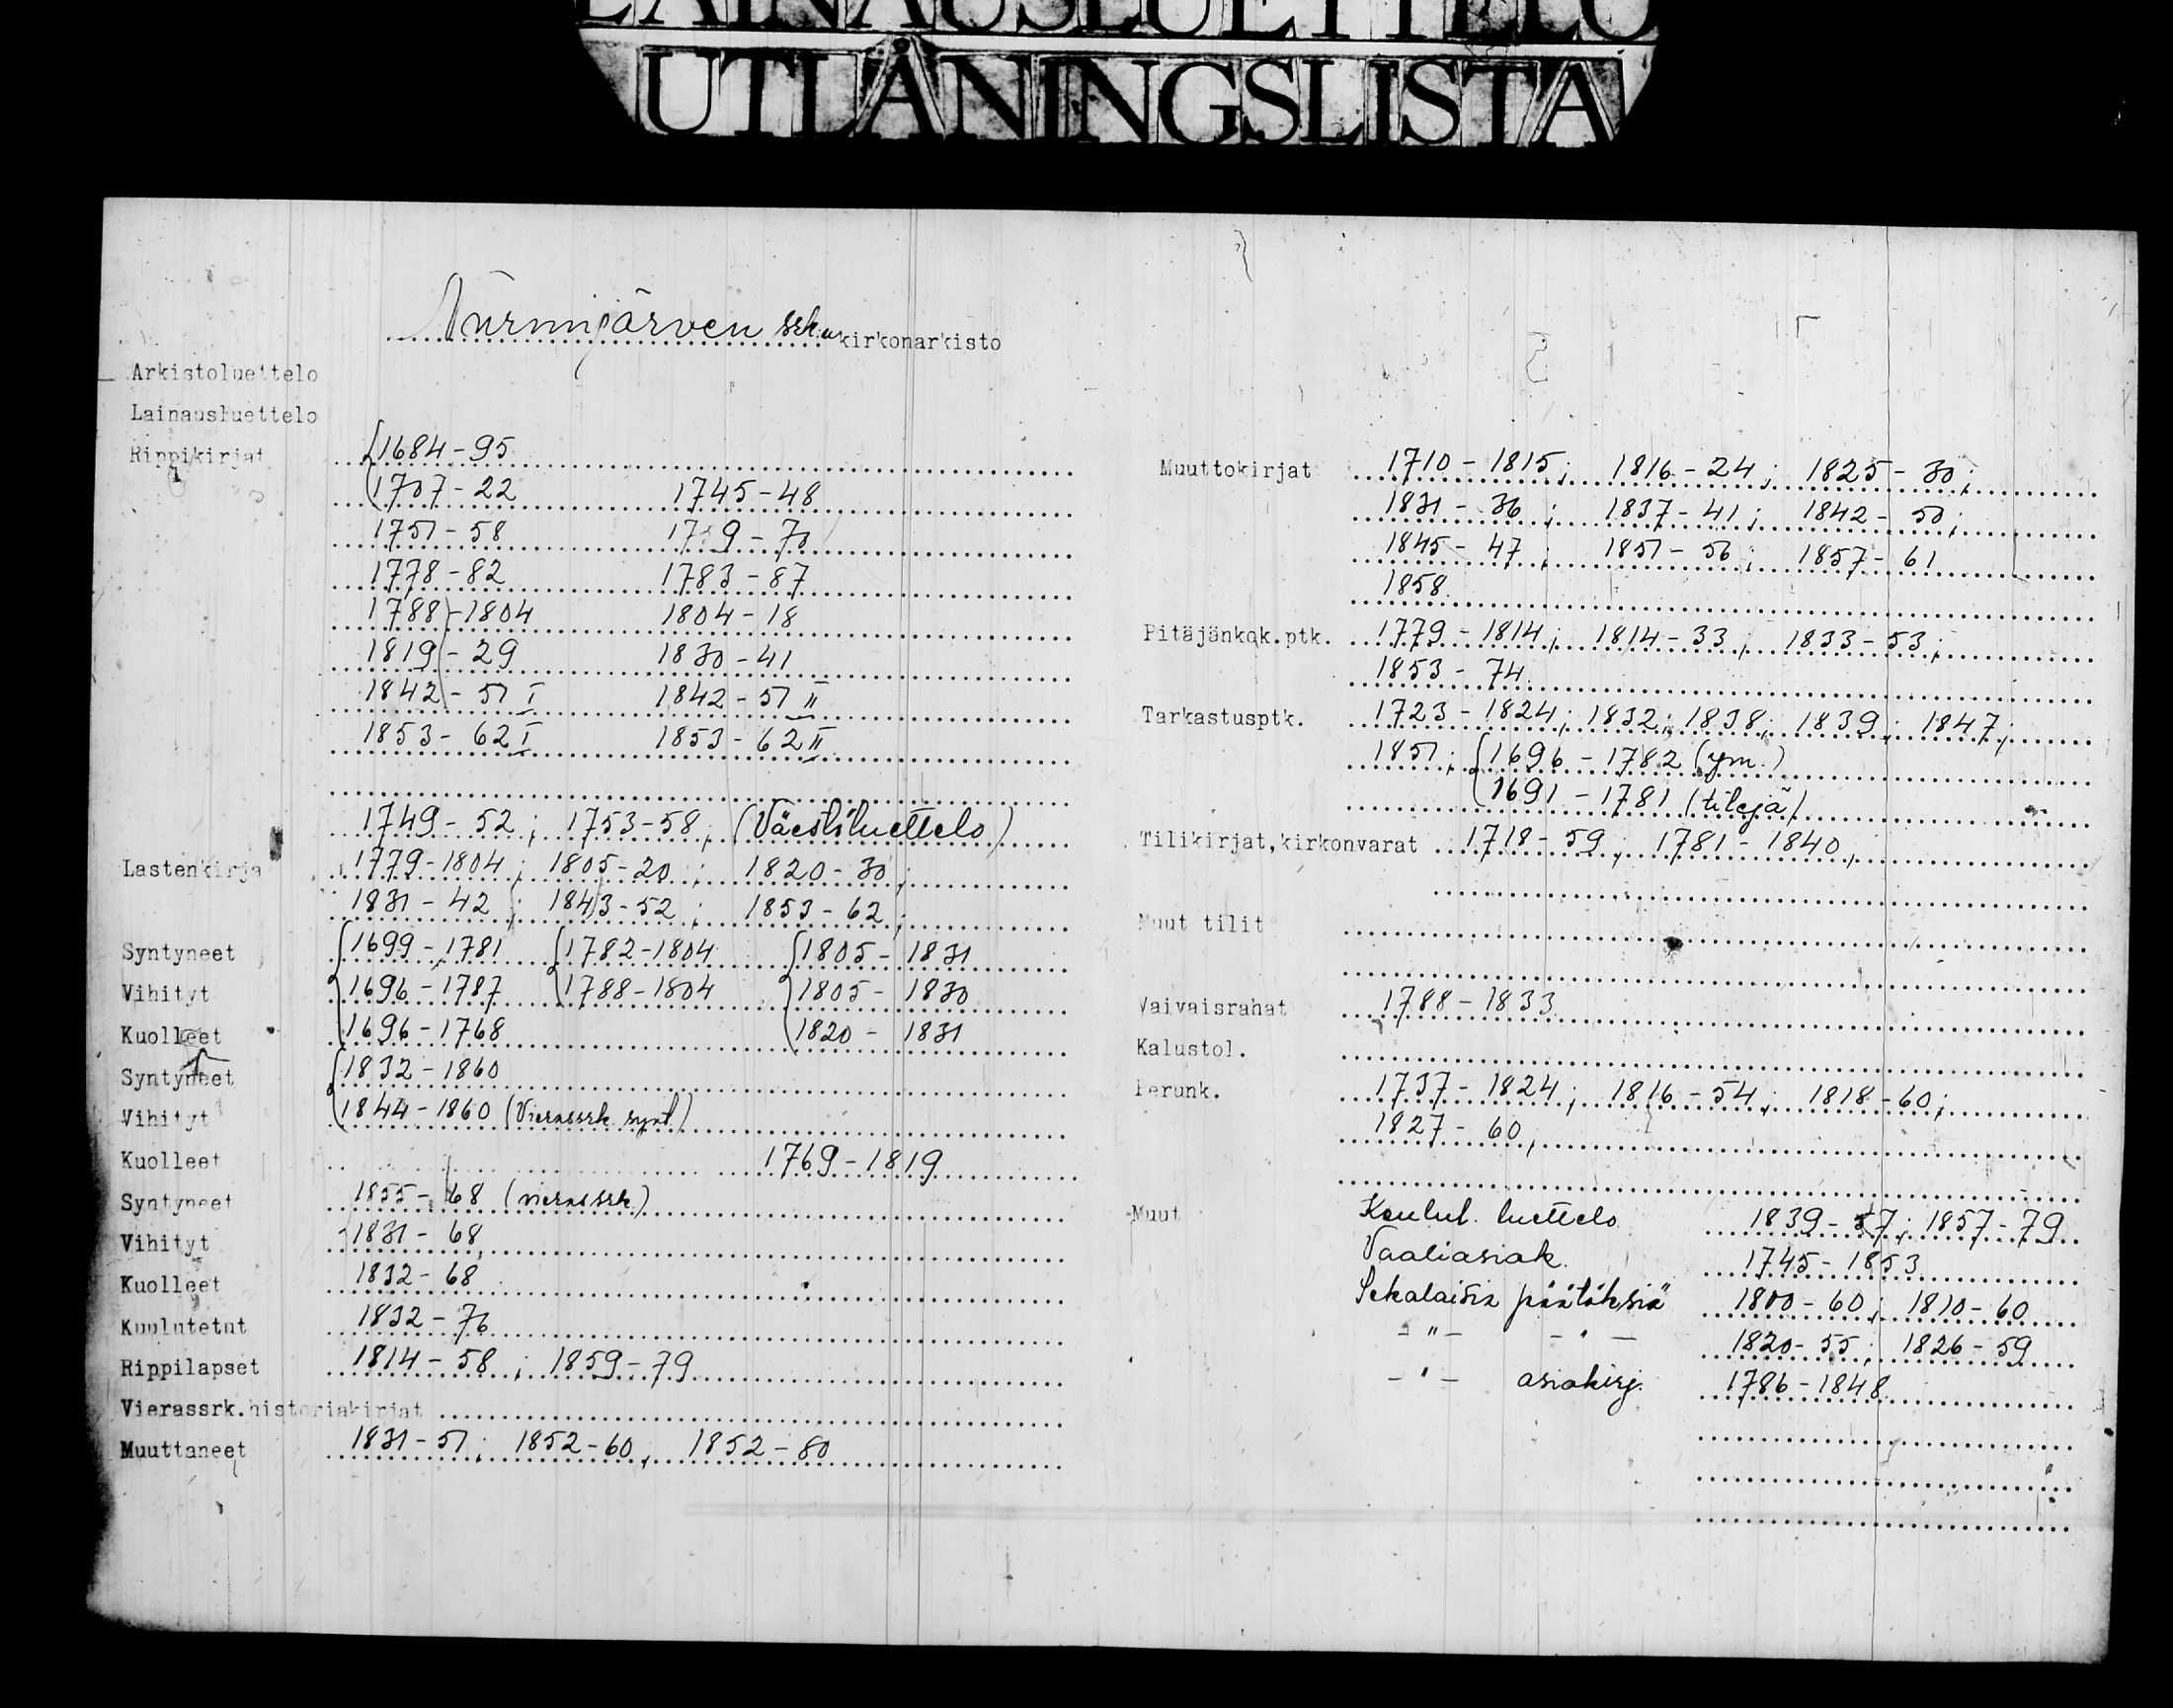 LAINAUSLUETTELO
UTLÅNINGSLISTA
Nurmijärven srk:n kirkonarkisto
Arkistoluettelo
Lainausluettelo
Rippikirjat 1684-95
1707-22 1745-48
1751-58 1759-70
1778-82 1783-87
1788-1804 1804-18
1819-29 1830-41
1842-51 I 1842-51 II
1853-62 I 1853-62 II
1749-52; 1753-58; (Väestöluettelo)
Lastenkirja 1779-1804; 1805-20; 1820-30;
1831-42; 1843-52; 1853-62;
Syntyneet 1699-1781 1782-1804 1805-1831
Vihityt 1696-1787 1788-1804 1805-1830
Kuolleet 1696-1768 1820-1831
Syntyneet 1832-1860
Vihityt 1844-1860 (Vierassrk. synt.)
Kuolleet 1769-1819
Syntyneet 1855-68 (vierassrk.)
Vihityt 1831-68
Kuolleet 1832-68
Kuulutetut 1832-76
Rippilapset 1814-58; 1859-79
Vierassrk.historiakirjat
Muuttaneet 1831-51; 1852-60, 1852-80
Muuttokirjat 1710-1815; 1816-24; 1825-30;
1831-36; 1837-41; 1842-50;
1845-47; 1851-56; 1857-61
1858
Pitäjänkok.ptk. 1779-1814; 1814-33; 1833-53;
1853-74
Tarkastusptk. 1723-1824; 1832; 1838; 1839; 1847;
1851; 1696-1782 (ym.)
1691-1781 (tilejä)
Tilikirjat,kirkonvarat 1718-59, 1781-1840,
Muut tilit
Vaivaisrahat 1788-1833
Kalustol.
Perunk. 1737-1824; 1816-54; 1818-60;
1827-60,
Muut Kuulul. luettelo 1839-57; 1857-79
Vaaliasiak. 1745-1853
Sekalaisia päätöksiä 1800-60; 1810-60
-"- -"- 1820-55; 1826-59
-"- asiakirj. 1786-1848